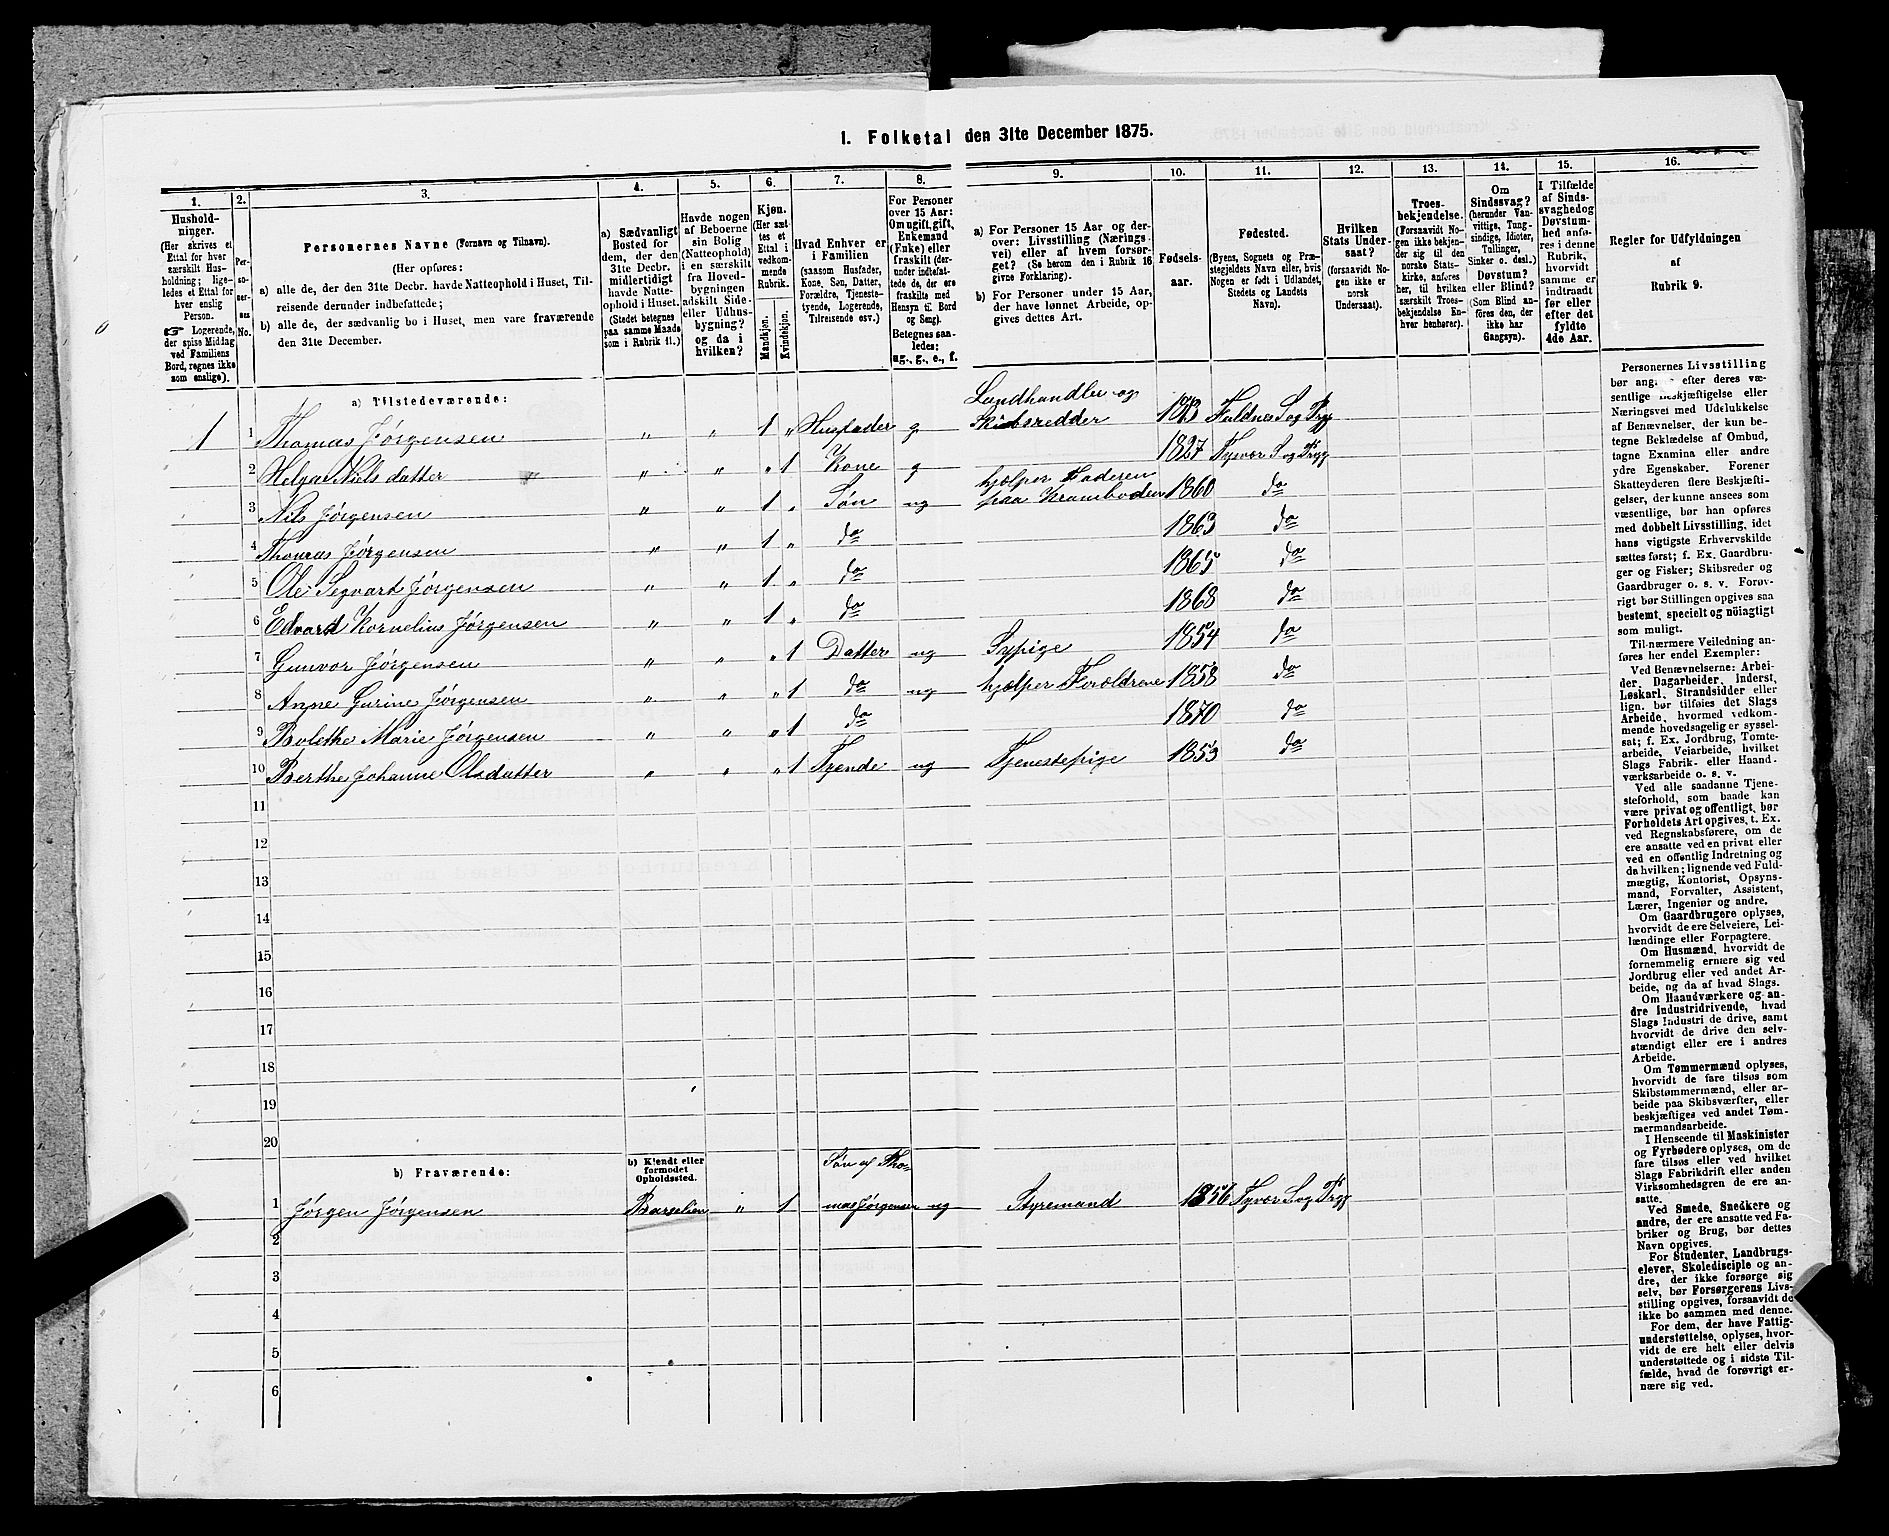 1. Folketal den 31te December 1875.
1.
2.
3.
4.
5.
6.
7.
8.
9.
10.
11.
12.
13.
14.
15.
16.
Hushold-
ninger.
(Her skrives et
Ettal for hver
særskilt Hus-
holdning; lige-
ledes et Ettal for
hver enslig
Person.
☞ Logerende,
der spise Middag
ved Familiens
Bord, regnes ikke
som enslige).
Per-
so-
ner-
nes
No.
Personernes Navne (Fornavn og Tilnavn).
(Her opføres:
a) alle de, der den 31te Decbr. havde Natteophold i Huset, Til-
reisende derunder indbefattede;
b) alle de, der sædvanlig bo i Huset, men vare fraværende
den 31te December.
a) Sædvanligt
Bosted for
dem, der den
31te Decbr.
midlertidigt
havde Natte-
ophold i Huset.
(Stedet betegnes
paa samme Maade
som i Rubrik 11.)
Havde nogen
af Beboerne
sin Bolig
(Natteophold)
i en særskilt
fra Hoved-
bygningen
adskilt Side-
eller Udhus-
bygning?
og da i
hvilken?
Kjøn.
(Her sæt-
tes et
Ettal i
vedkom-
mende
Rubrik.
Mandkjøn.
Kvindekjøn.
Hvad Enhver er
i Familien
(saasom Husfader,
Kone, Søn, Datter,
Forældre, Tjeneste-
tyende, Logerende,
Tilreisende osv.)
For Personer
over 15 Aar:
Om ugift, gift,
Enkemand
(Enke) eller
fraskilt (der-
under indbefat-
tede de, der ere
fraskilte med
Hensyn til Bord
og Seng).
Betegnes saa-
ledes:
ug., g., e., f.
a) For Personer 15 Aar og der-
over: Livsstilling (Nærings-
vei) eller af hvem forsør-
get? (Se herom den i Rubrik 16
givne Forklaring).
b) For Personer under 15 Aar,
der have lønnet Arbeide, op-
gives dettes Art.
Fødsels-
aar.
Fødested.
(Byens, Sognets og Præ-
stegjeldets Navn eller, hvis
Nogen er født i Udlandet,
Stedets og Landets
Navn).
Hvilken
Stats Under-
saat?
(forsaavidt No-
gen ikke er
norsk
Undersaat).
Troes-
bekjendelse.
(Forsaavidt No-
gen ikke bekjen-
der sig til den
norske Stats-
kirke, anføres
her, til hvilken
særskilt Troes-
bekjendelse En-
hver henhører).
Om
Sindssvag?
(herunder Van-
vittige, Tung-
sindige, Idioter,
Tullinger,
Sinker o. desl.)
Døvstum?
eller Blind?
(Som Blind an-
føres den, der
ikke har
Gangsyn).
I Tilfælde
af Sinds-
svaghed og
Døvstum-
hed anfø-
res i denne
Rubrik,
hvorvidt
samme er
indtraadt
før eller
efter det
fyldte
4de Aar.
Regler for Udfyldningen
af
Rubrik 9.
a) Tilstedeværende:
1 1 Thomas Jørgensen " " 1 " Husfader g Landhandler og
Skibsredder 1823 Faldnes S og Prg
2 Helga Nielsdatter " " " 1 Kone g 1827 Tysvær S og Prg
3 Nils Jørgensen " " 1 " Søn ug hjælper Faderen
paa Kramboden 1860 do
4 Thomas Jørgensen " " 1 " do 1863 do
5 Ole Segvart Jørgensen " " 1 " do 1865 do
6 Edvard Kornelius Jørgensen " " 1 " do 1868 do
7 Gunvor Jørgensen " " " 1 Datter ug Sypige 1854 do
8 Anne Gurine Jørgensen " " " 1 do ug hjælper Forældrene 1858 do
9 Bolethe Marie Jørgensen " " " 1 do 1870 do
10 Berthe Johanne Olsdatter " " " 1 Tjende ug Tjenestepige 1853 do
11
12
13
14
15
16
17
18
19
20
b) Fraværende:
b) Kjendt eller
formodet
Opholdssted.
1 Jørgen Jørgensen " 1 Søn af Tho-
mas Jørgensen ug Styremand 1856 Tysvær S og Prg
2
3
4
5
6
Personernes Livsstilling
bør angives efter deres væ-
sentlige Beskjæftigelse eller
Næringsvei med Udelukkelse
af Benævnelser, der kun be-
tegne Beklædelse af Ombud,
tagne Examina eller andre
ydre Egenskaber. Forener
Skatteyderen flere Beskjæfti-
gelser, der kunne ansees som
væsentlige, bør han opføres
med dobbelt Livsstilling, idet
hans vigtigste Erhvervskilde
sættes først; f. Ex. Gaardbru-
ger og Fisker; Skibsreder og
Gaardbruger o. s. v. Forøv-
rigt bør Stillingen opgives saa
bestemt, specielt og nöiagtigt
som muligt.
Til nærmere Veiledning an-
føres her endel Exempler:
Ved Benævnelserne: Arbei-
der, Dagarbeider, Inderst,
Løskarl, Strandsidder eller
lign. bør tilføies det Slags
Arbeide, hvormed vedkom-
mende hovedsagelig er syssel-
sat; f. Ex. Jordbrug, Tomte-
arbeide, Veiarbeide, hvilket
Slags Fabrik- eller Haand-
værksarbeide o. s. v.
Ved alle saadanne Tjene-
steforhold, som baade kan
være privat og offentligt, bør
Forholdets Art opgives, t. Ex.
ved Regnskabsførere, om de
ere ansatte ved en privat eller
ved en offentlig Indretning og
da hvilken; lignende ved Fuld-
mægtig, Kontorist, Opsyns-
mand, Forvalter, Assistent,
Lærer, Ingeniør og andre.
Om Gaardbrugere oplyses,
hvorvidt de ere Selveiere, Lei-
lændinge eller Forpagtere.
Om Husmænd, hvorvidt de
fornemmelig ernære sig ved
Jordbrug eller ved andet Ar-
beide, og da af hvad Slags.
Om Haandværkere og an-
dre Industridrivende, hvad
Slags Industri de drive, samt
hvorvidt de drive den selv-
stændigt eller ere i andres
Arbeide.
Om Tømmermænd oplyses,
hvorvidt de fare tilsøs som
Skibstømmermænd, eller ar-
beide paa Skibsværfter, eller
beskjæftiges ved andet Tøm-
mermandsarbeide.
I Henseende til Maskinister
og Fyrbødere oplyses, om de
fare tilsøs eller ved hvilket
Slags Fabrikdrift eller anden
Virksomhedsgren de ere an-
satte.
Ved Smede, Snedkere og
andre, der ere ansatte ved Fa-
briker og Brug, bør dettes
Navn opgives.
For Studenter, Landbrugs-
elever, Skoledisciple og an-
dre, der ikke forsørge sig
selv, bør Forsørgerens Livs-
stilling opgives, forsaavidt de
ikke bo sammen med denne.
For dem, der have Fattig-
understøttelse, oplyses, hvor-
vidt de ere helt eller delvis
understøttede og i sidste Til-
fælde, hvad de forøvrigt er-
nære sig ved.